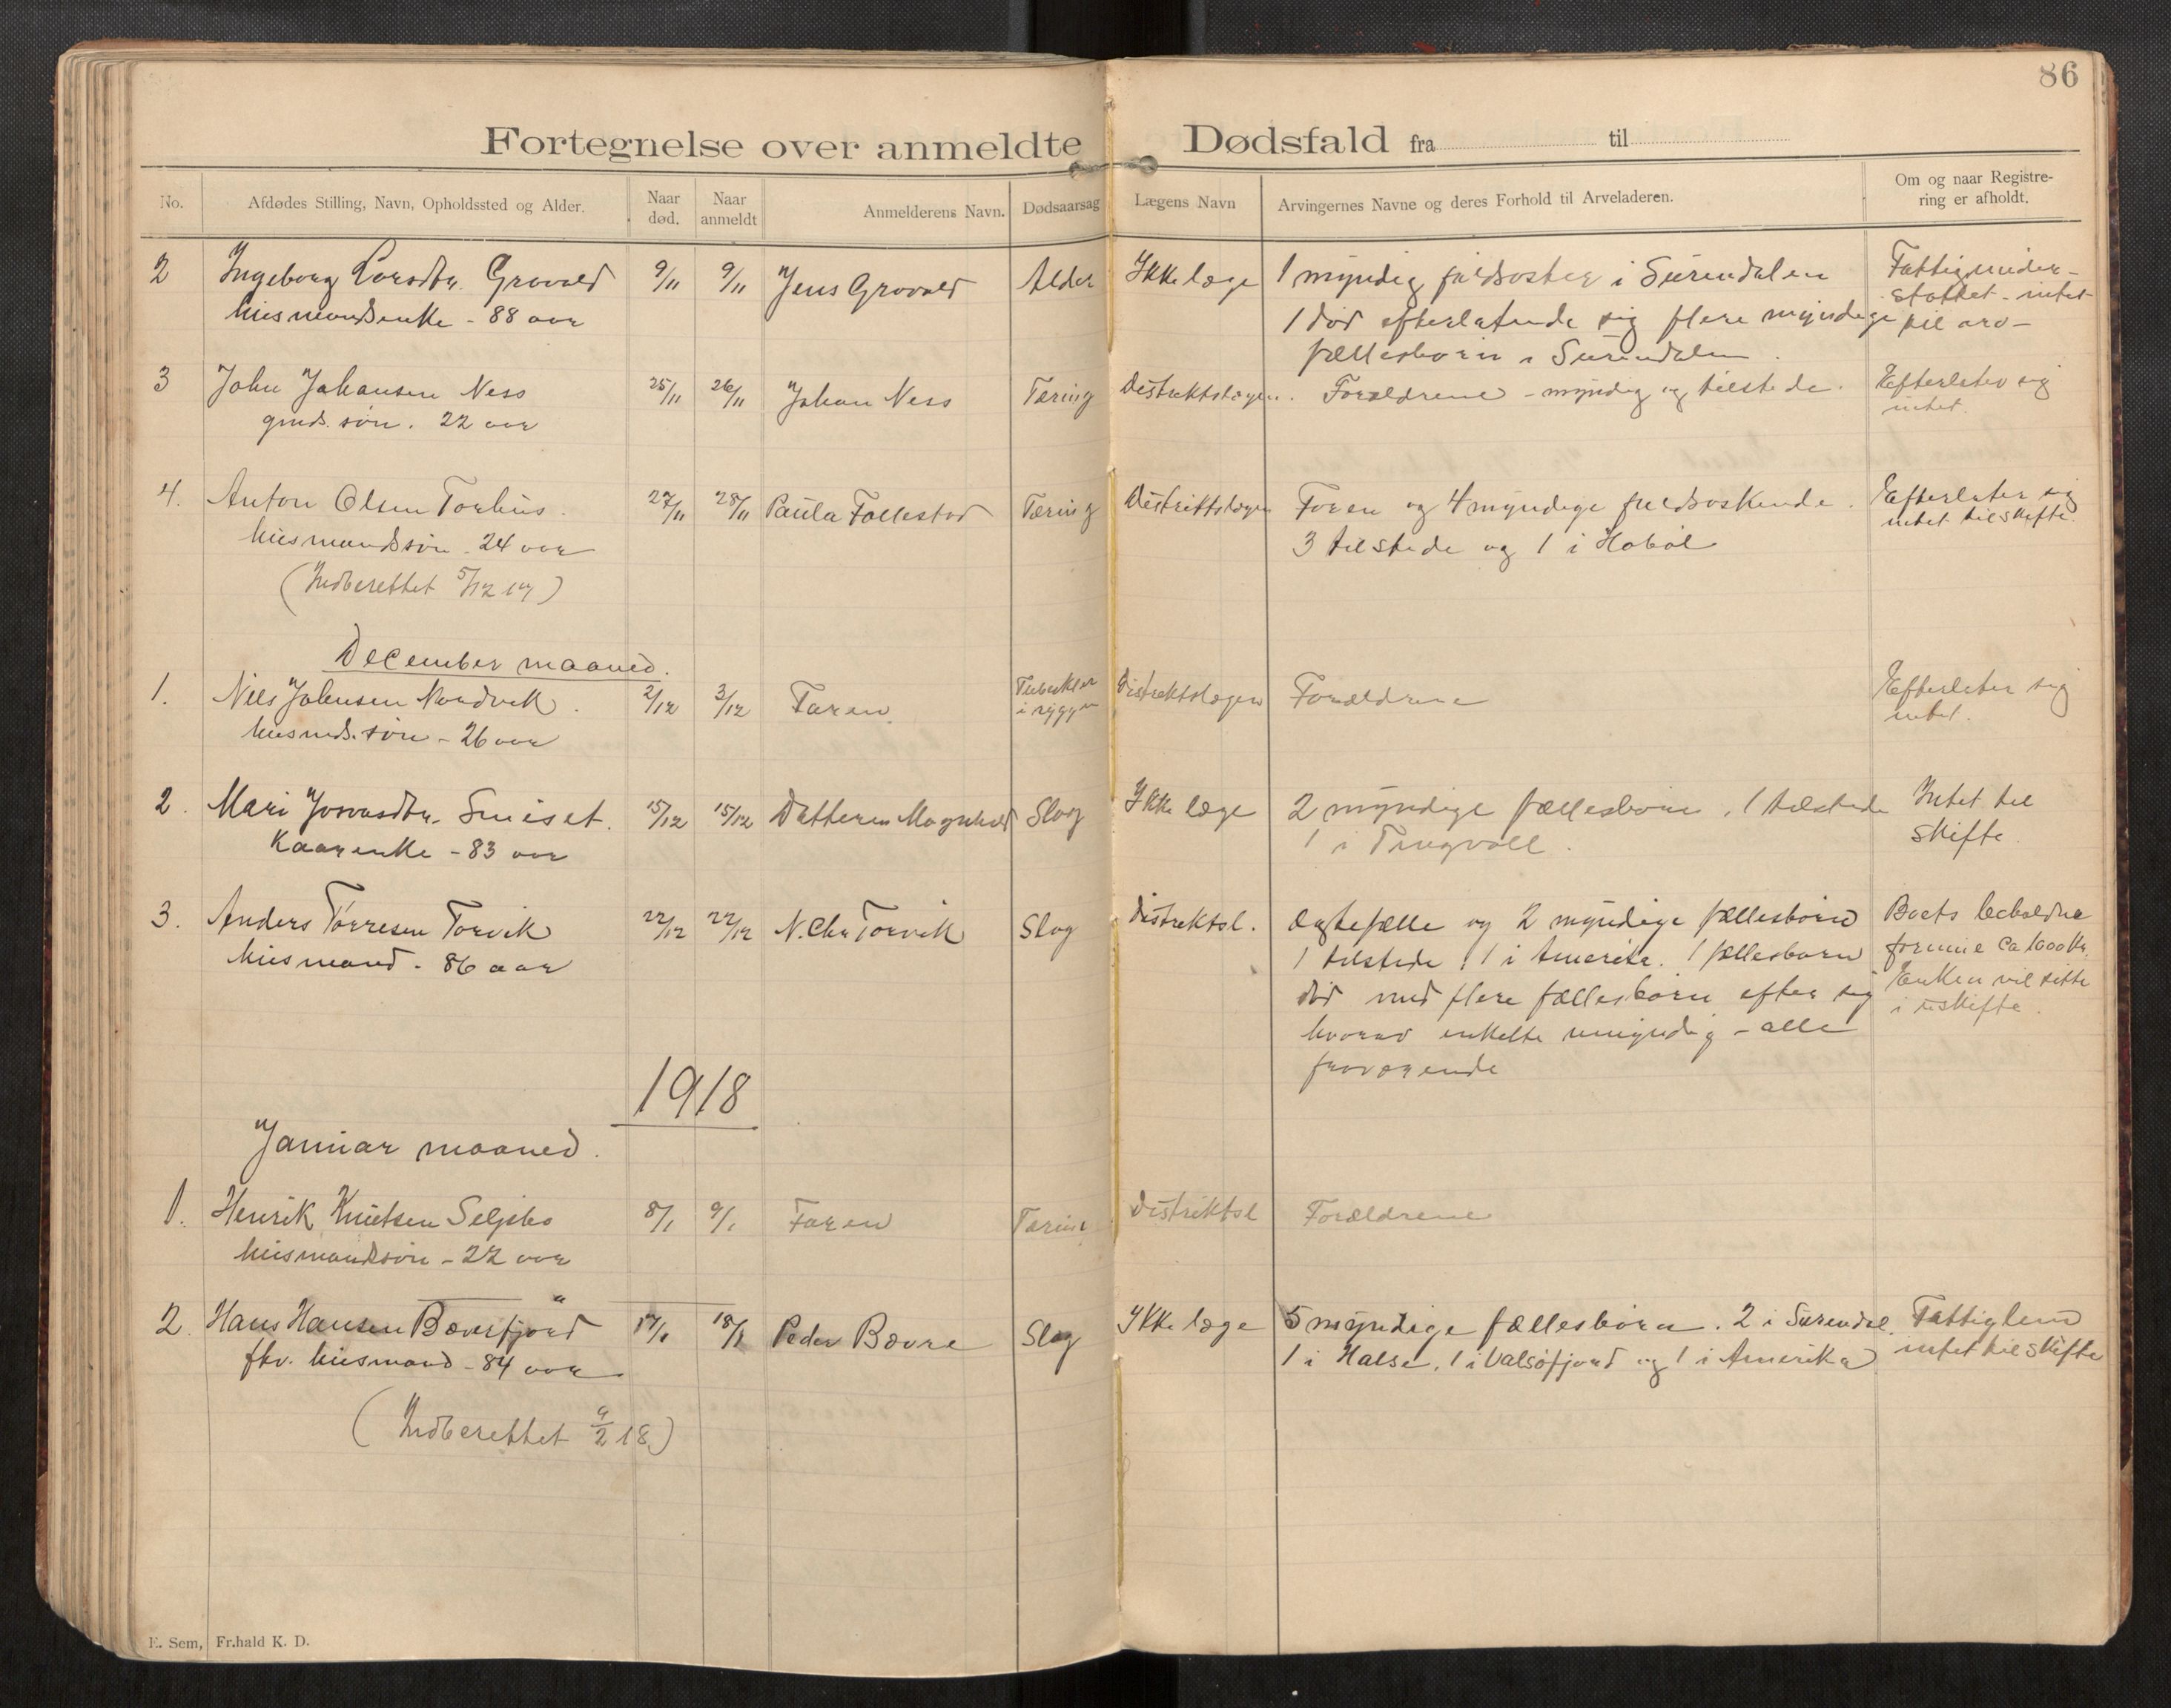 86
Fortegnelse over anmeldte Dødsfald fra til
No. Afdødes Stilling, Navn, Opholdssted og Alder. Naar død. Naar anmeldt Anmelderens Navn. Dødsaarsag Lægens Navn Arvingernes Navne og deres Forhold til Arveladeren. Om og naar Registrering er afholdt.
2 Ingeborg Larsdtr. Grovald 9/11 9/11 Jens Grovald Alder Ikke læge 1 myndig fuldsøster i Surendalen Fattigunder-
husmandsenke - 88 aar 1 død efterlatende sig flere myndige støttet - intet
fællesbørn i Surendalen. til arv -
3 John Johansen Ness 25/11 26/11 Johan Ness Tæring Distriktslægen. Forældrene - myndig og tilstede. Efterlater sig
gmds. søn. 22 aar intet.
4. Anton Olsen Torhus. 27/11 28/11 Paula Follestad Tæring Distriktslægen Faren og 4 myndige fuldsøskende. Efterlater sig
husmandssøn - 24 aar 3 tilstede og 1 i Hobøl intet til skifte.
(Indberettet 5/12 17)
December maaned.
1. Nils Johnsen Nordvik. 2/12 3/12 Faren Tuberkler Distriktslægen Forældrene Efterlater sig
husmds. søn - 26 aar i ryggen intet.
2. Mari Josvasdtr. Smiset. 15/12 15/12 Datteren Magnhild Slag Ikke læge 2 myndige fællesbørn. 1 tilstede Intet til
Kaarenke - 83 aar 1 i Tingvoll. skifte.
3. Anders Tørresen Torvik 22/12 22/12 N. Chr. Torvik Slag Distriktsl. Ægtefælle og 2 myndige fællesbørn Boets beholdne
husmand - 86 aar 1 tilstede. 1 i Amerika. 1 fællesbarn formue ca 1000 Kr.
død med flere fællesbørn efter sig Enken vil sitte
hvorav enkelte umyndig - alle i uskifte.
fraværende
1918
Januar maaned.
1. Henrik Knutsen Seljebø 8/1 9/1 Faren Tæring Distriktsl Forældrene
husmandssøn - 22 aar
2. Hans Hansen Bæverfjord 17/1 18/1 Peder Bævre Slag Ikke læge 5 myndige fællesbørn. 2 i Surendal. Fattiglem
fhv. husmand - 84 aar 1 i Halse. 1 i Valsøfjord og 1 i Amerika intet til skifte
(Indberettet 9/2 18)
E. Sem, Fr.hald K. D.